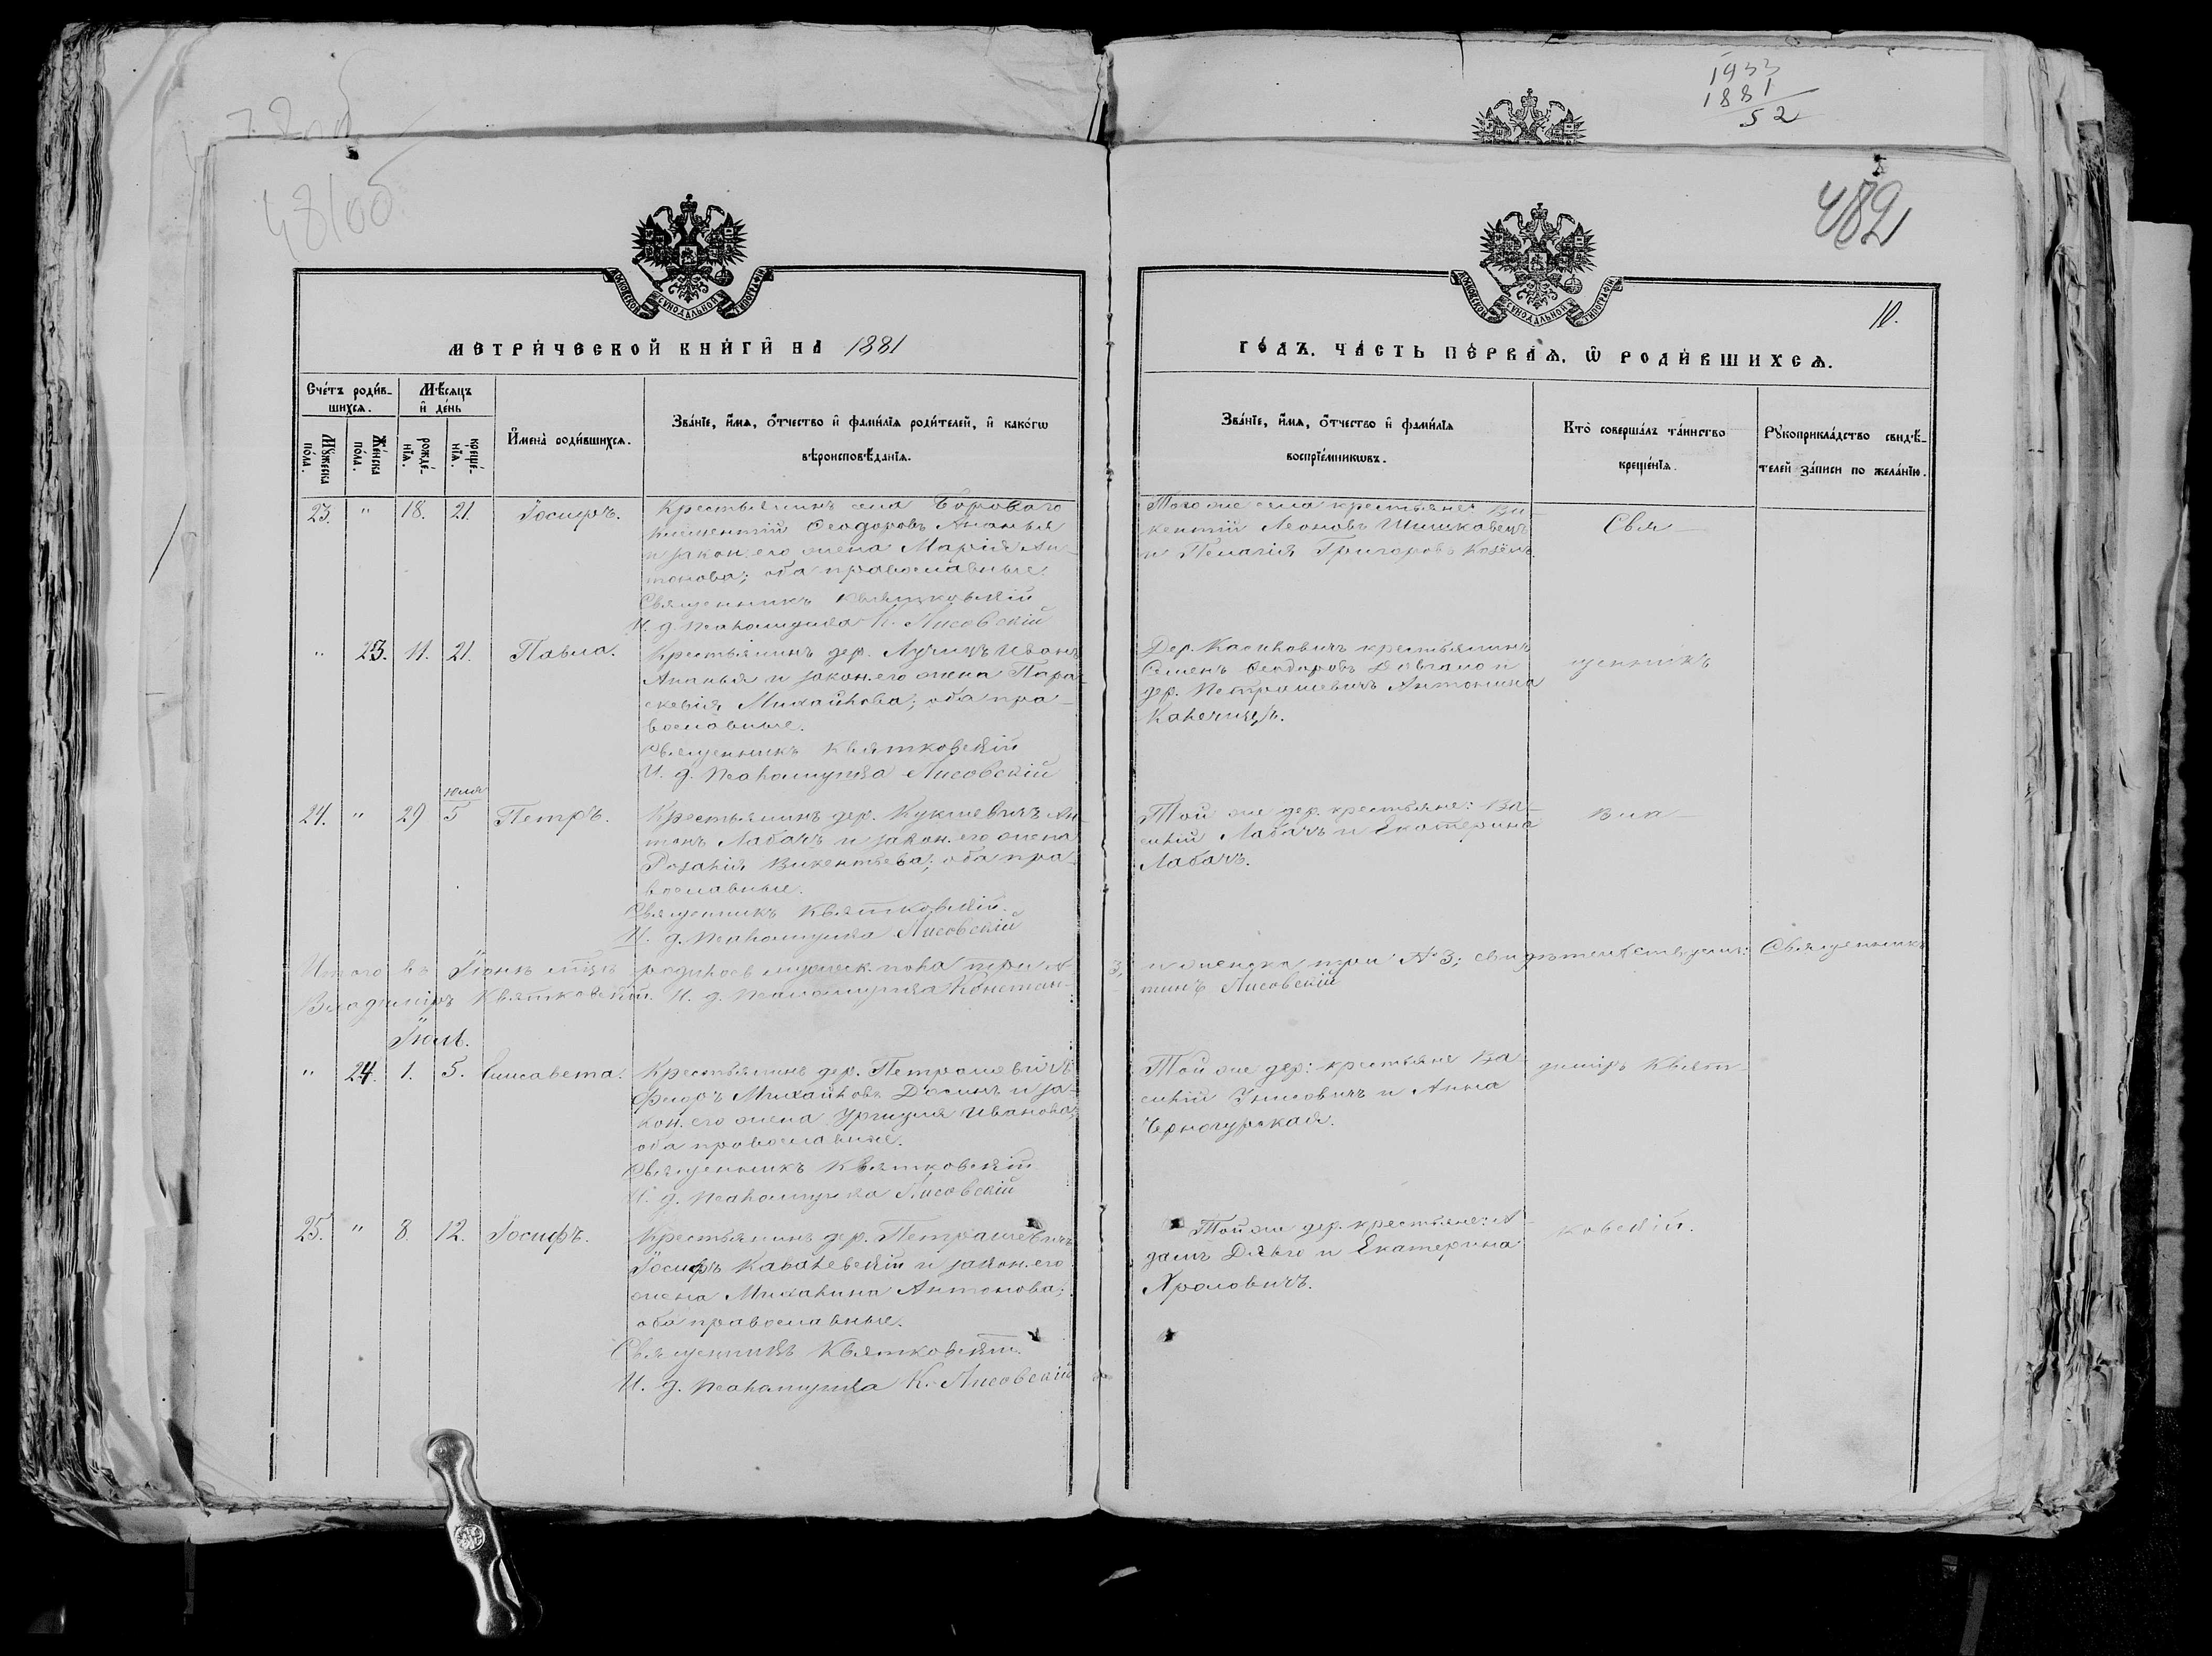 1933
1881
52
481об
482
10.
МЕТРИЧЕСКОЙ КНИГИ НА 1881
ГОДЪ. ЧАСТЬ ПЕРВАЯ. Ѡ РОДИВШИХСЯ.
Счетъ родив-
шихся.
Мѣсяцъ
и день
Мужеска
пола.
Женска
пола.
рожде-
нія.
креще-
нія.
Имена родившихся.
Званіе, имя, отчество и фамилія родителей, и какогѡ
вѣроисповѣданія.
Званіе, имя, отчество и фамилія
воспріемникѡвъ.
Кто совершалъ таинство
крещенія.
Рукоприкладство свидѣ-
телей записи по желанію.
23. " 18. 21. Іосифъ.
Крестьянинъ села Борового
Ѳеодоровъ Ананья
и закон. его жена Марія Ан-
тонова; оба православные.
Священникъ Квятковскій
И. д. Псаломщика К. Лисовскій
Того же села крестьяне: Ви-
кентій Леоновъ Шишкавецъ
и Пелагія Григорова Козёлъ.
Свя-
" 23. 11. 21. Павла.
Крестьянинъ дер. Лучицъ Иванъ
Ананья и закон. его жена Пара-
скевія Михайлова; оба пра-
вославные.
Священникъ Квятковскій
И. д. Псаломщика Лисовскій
Дер. крестьянинъ
Семенъ Ѳеодоровъ Довгало и
дер. Петрашевичъ Антонина
щенникъ
24. " 29 Юля 5 Петръ.
Крестьянинъ дер. Кукшевичъ Ан-
тонъ Лабачъ и закон. его жена
Розалія Викентьева; оба пра-
вославные.
Священникъ Квятковскій.
И. д. Псаломщика Лисовскій
Той же дер. крестьяне: Ва-
силій Лабачъ и Екатерина
Лабачъ.
Вла-
Итого въ Іюнѣ м-цѣ родилось мужеск. пола три № 3, и женска три № 3; свидѣтельствуемъ: Священникъ
Владиміръ Квятковскій. И. д. Псаломщика Констан- тинъ Лисовскій
Іюль.
" 24. 1. 5. Елисавета.
Крестьянинъ дер. Петрашевичъ
Михайловъ и за-
кон. его жена Урщуля Иванова;
оба православные.
Священникъ Квятковскій
И. д. Псаломщика Лисовскій
Той же дер: крестьяне Ва-
силій и Анна
диміръ Квят-
25. " 8. 12. Іосифъ.
Крестьянинъ дер. Петрашевичъ
Іосифъ Ковалевскій и закон. его
жена Михалина Антонова;
оба православные.
Священникъ Квятковскій.
И. д. Псаломщика К. Лисовскій
Той же дер. крестьяне: А-
дамъ и Екатерина
ковскій.